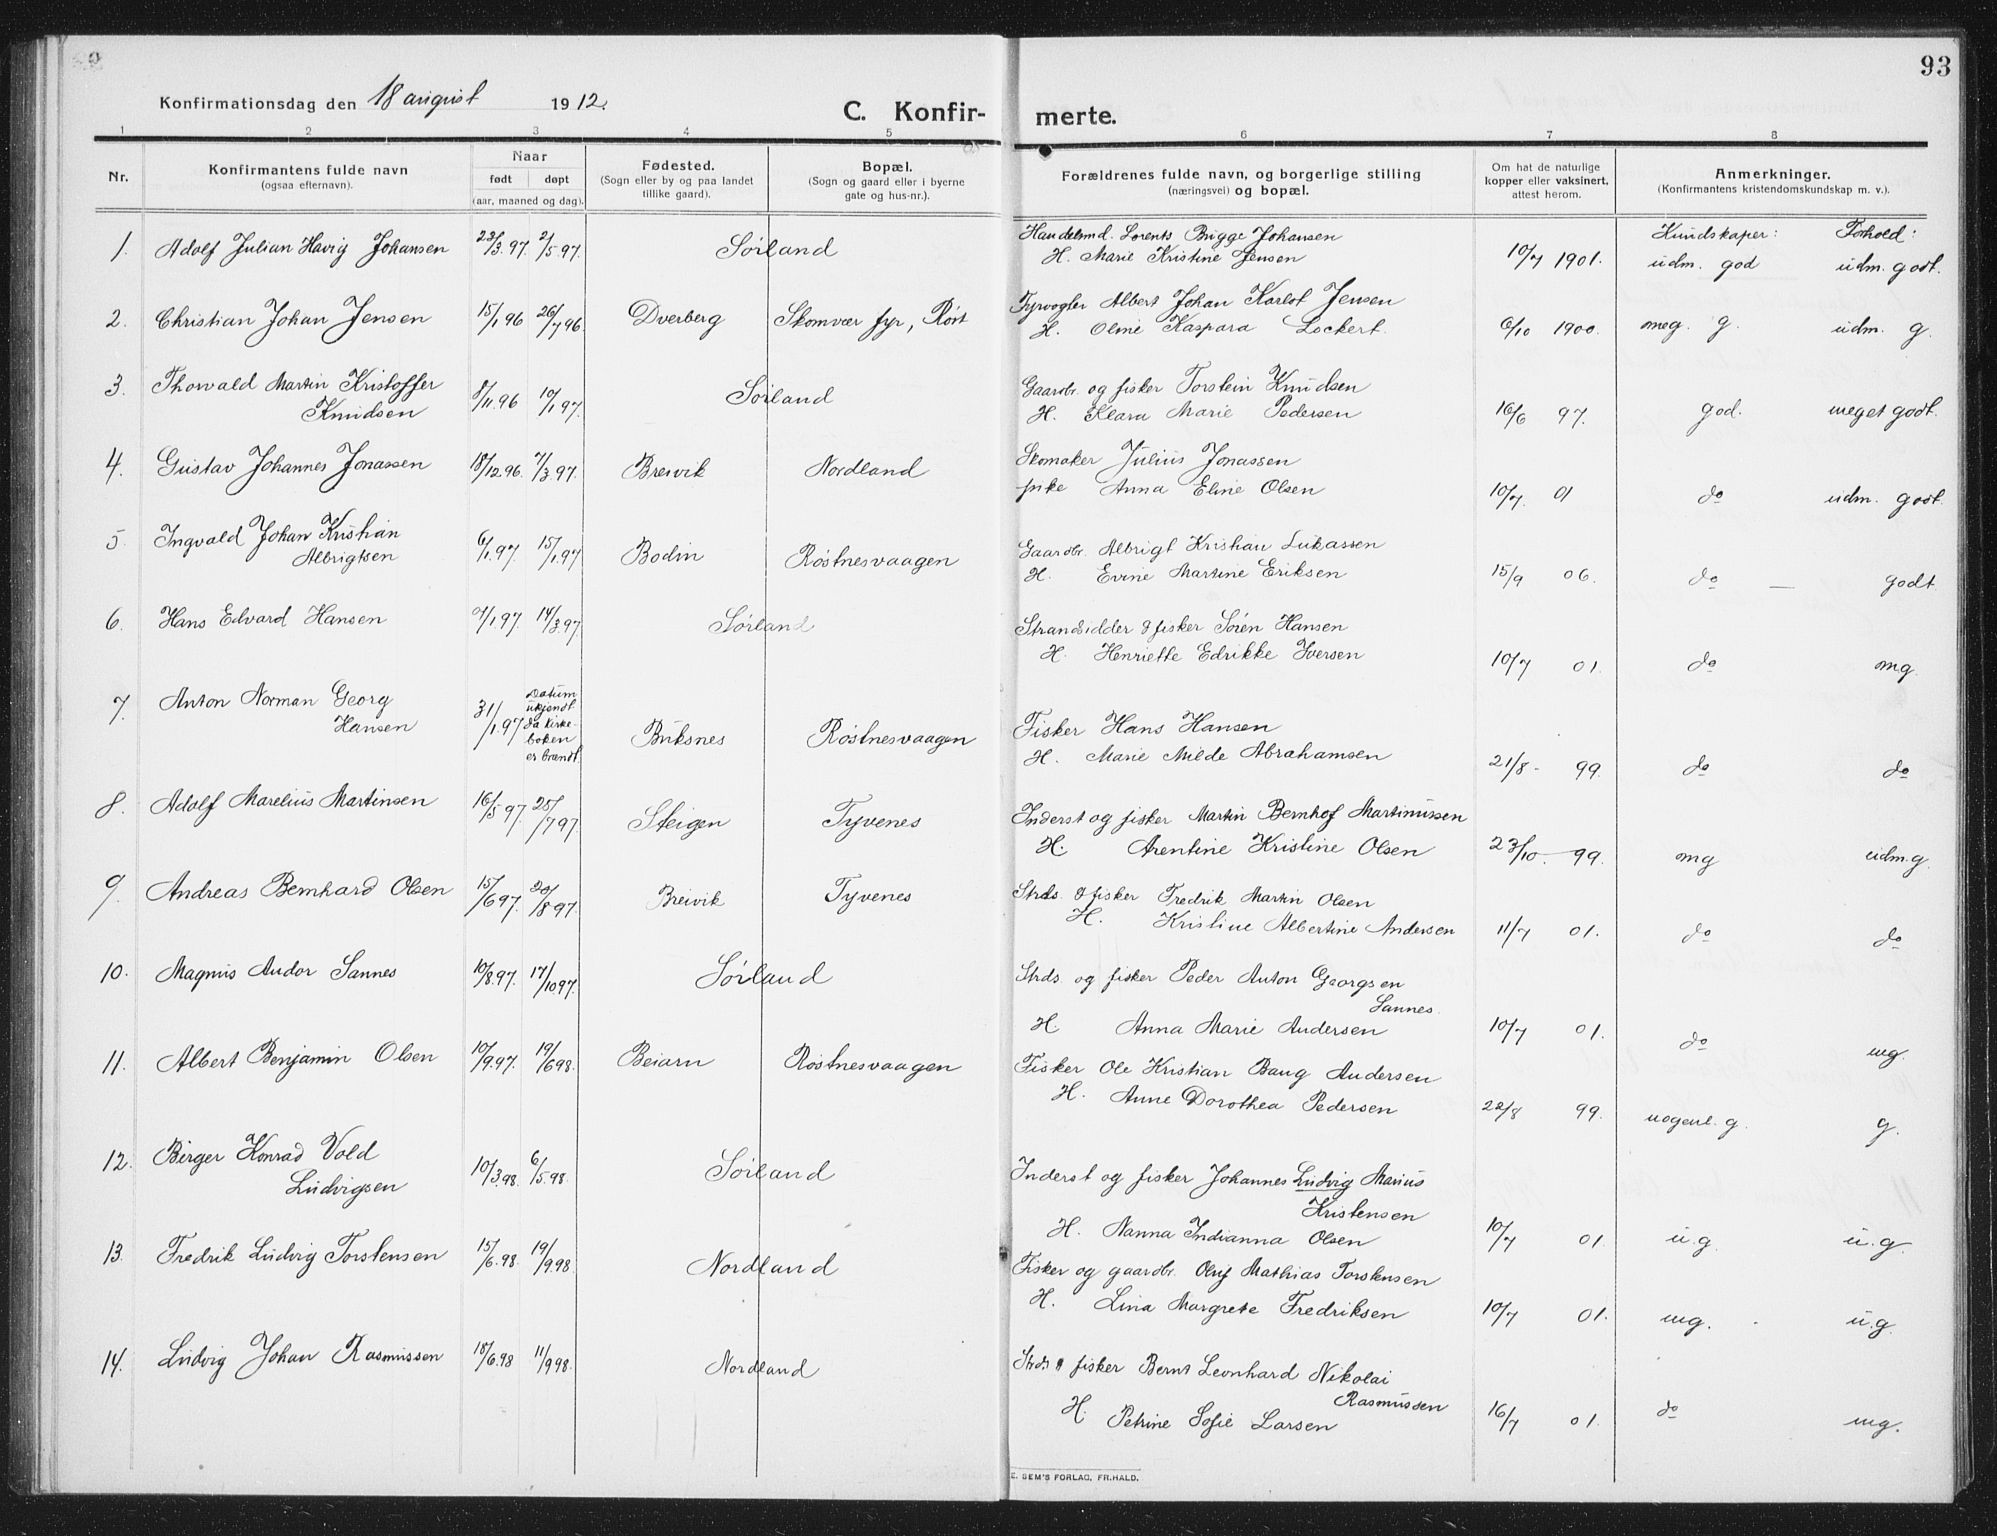 93
Konfirmationsdag den 18 august 1912.
C. Konfir- merte.
1 2 3 4 5 6 7 8
Nr.
Konfirmantens fulde navn
(ogsaa efternavn).
Naar
født døpt
(aar, maaned og dag).
Fødested.
(Sogn eller by og paa landet
tillike gaard).
Bopæl.
(Sogn og gaard eller i byerne
gate og hus-nr.).
Forældrenes fulde navn, og borgerlige stilling
(næringsvei) og bopæl.
Om hat de naturlige
kopper eller vaksinert,
attest herom.
Anmerkninger.
(Konfirmantens kristendomskundskap m. v.).
Kundskaper: Forhold:
1. Adolf Julian Havig Johansen 23/3.97. 2/5.97. Sørland
Handelsmd. Lorents Bugge Johansen
H. Marie Kristine Jensen 10/7 1901. udm. god udm. godt.
2. Christian Johan Jensen 15/1 96 26/7 96. Dverberg Skomvær fyr, Røst
Fyrvogter Albert Johan Karlot Jensen
H. Oline Kaspara Lockert. 6/10 1900. meg. g. udm. g.
3. Thorvald Martin Kristoffer
Knudsen 8/11.96 10/1 97. Sørland
Gaardbr. og fisker Torstein Knudsen
H. Klara Marie Pedersen 16/6 97. god. meget godt.
4. Gustav Johannes Jonassen 18/12.96. 7/3.97. Breivik Nordland
Skomaker Julius Jonassen
pike Anna Eline Olsen 10/7. 01 do udm. godt.
5. Ingvald Johan Kristian
Albrigtsen 6/1.97. 15/1.97 Bodin Røstnesvaagen
Gaardbr. Albrigt Kristian Lukassen
H. Evine Martine Eriksen 15/9 06. do — godt
6. Hans Edvard Hansen 9/1.97. 14/3.97. Sørland
Strandsidder & fisker Søren Hansen
H. Henriette Edrikke Iversen 10/7 01. do mg.
7. Anton Norman Georg
Hansen 31/1.97 Datum
ukjendt
da kirke-
boken
er brændt. Buksnes Røstnesvaagen
Fisker Hans Hansen
H. Marie Milde Abrahamsen 21/8 - 99. do do
8. Adolf Marelius Martinsen 16/5 97. 25/7 97. Steigen Tyvenes
Inderst og fisker Martin Bernhof Martinussen
H. Arentine Kristine Olsen 23/10. 99. mg udm.g.
9. Andreas Bernhard Olsen 15/6 97. 20/8 97. Breivik Tyvenes
Strds. & fisker Fredrik Martin Olsen
H. Kristine Albertine Andersen 11/7 01. do do
10. Magnus Andor Sannes 10/8.97. 17/10 97. Sørland
Strds. og fisker Peder Anton Georgsen
Sannes.
H. Anna Marie Andersen 10/7 01. do mg.
11. Albert Benjamin Olsen 10/9.97. 19/6 98. Beiarn Røstnesvaagen
Fisker Ole Kristian Baug Andersen
H. Anne Dorothea Pedersen 22/8 99. nogenl. g. g.
12. Birger Konrad Vold
Ludvigsen 10/3.98. 6/5.98. Sørland
Inderst og fisker Johannes Ludvig Marius
Kristensen
H. Nanna Indianna Olsen 10/7 01. u.g. u.g.
13. Fredrik Ludvig Torstensen 15/6.98. 19/9.98. Nordland
Fisker og gaardbr. Oluf Mathias Torstensen
H. Lina Margrete Fredriksen 10/7 01. mg. u.g.
14. Ludvig Johan Rasmussen 18/6.98 11/9 98. Nordland
Strds & fisker Bernt Leonhard Nikolai
Rasmussen
H. Petrine Sofie Larsen 16/7 01. do mg.
E. SEM'S FORLAG, FR.HALD.